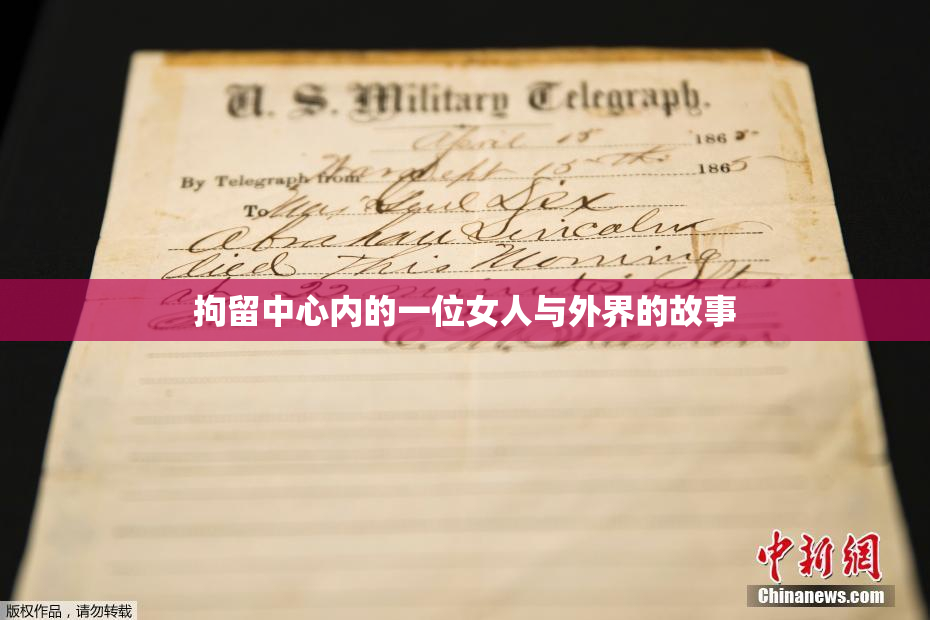 U. S. Military Telegraph.
April 15 1865
By Telegraph from War Dept 15th 1865
To Maj Genl Dix
Abraham Lincoln
died This Morning
at 22 minutes after
拘留中心内的一位女人与外界的故事
E. M. Stanton
中新網
Chinanews.com
版权作品,请勿转载